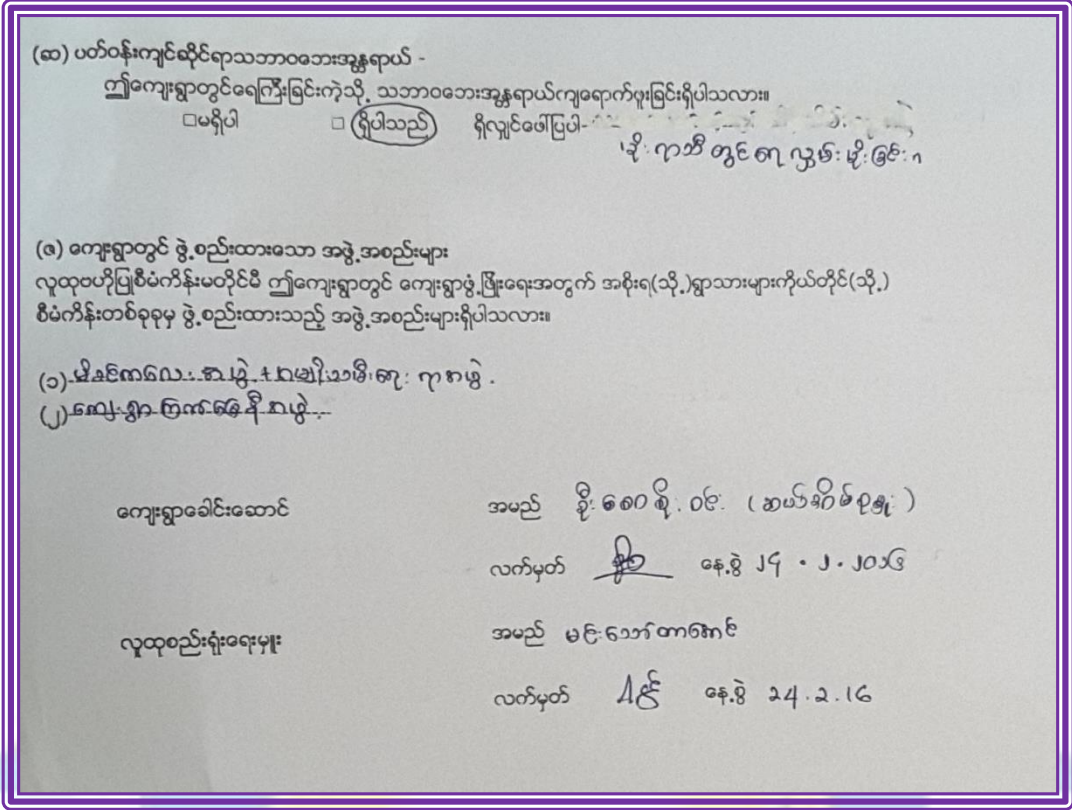 (ဆ) ပတ်ဝန်းကျင်ဆိုင်ရာသဘာဝဘေးအန္တရာယ် -
ဤကျေးရွာတွင်ရေကြီးခြင်းကဲ့သို့ သဘာဝဘေးအန္တရာယ်ကျရောက်ဖူးခြင်းရှိပါသလား။
□မရှိပါ □ ရှိပါသည် ရှိလျှင်ဖေါ်ပြပါ-
မိုးရာသီတွင် ရေလွှမ်းမိုးခြင်း။
(ဇ) ကျေးရွာတွင် ဖွဲ့စည်းထားသော အဖွဲ့အစည်းများ
လူထုဗဟိုပြုစီမံကိန်းမတိုင်မီ ဤကျေးရွာတွင် ကျေးရွာဖွံ့ဖြိုးရေးအတွက် အစိုးရ(သို့)ရွာသားများကိုယ်တိုင်(သို့)
စီမံကိန်းတစ်ခုခုမှ ဖွဲ့စည်းထားသည့် အဖွဲ့အစည်းများရှိပါသလား။
(၁) မိခင်ကလေး အဖွဲ့ + အမျိုးသမီးရေးရာအဖွဲ့.
(၂) ကျေးရွာ ကြက်ခြေနီအဖွဲ့
ကျေးရွာခေါင်းဆောင် အမည် ဦး စိုးဝင်း (ဆယ်အိမ်စုမှူး)
လက်မှတ် နေ့စွဲ ၂၄.၂.၂၀၁၆
လူထုစည်းရုံးရေးမှူး အမည် မင်းသော်တာအောင်
လက်မှတ် နေ့စွဲ 24.2.16